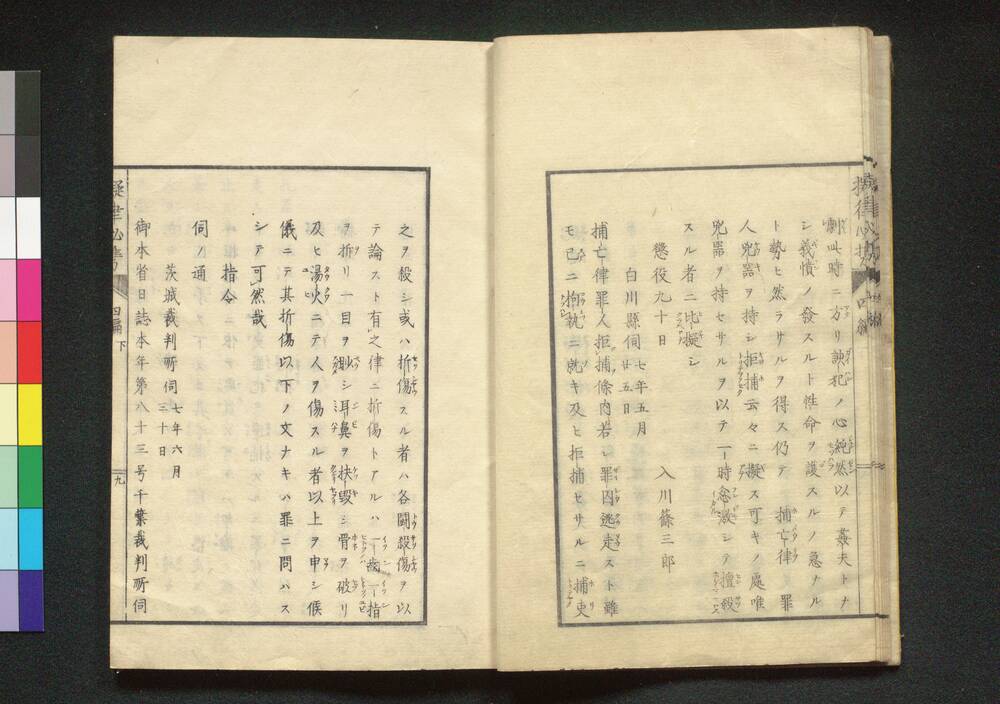 劇叫時ニ方リ訣犯ノ心純然以テ姦夫トナ
シ義憤ノ發スルト性命ヲ護スルノ急ナル
ト勢ヒ然ラサルヲ得ス仍テ捕亡律罪
人兇器ヲ持シ拒捕云々ニ擬ス可キノ處唯
兇器ヲ持セサルヲ以テ一時忿激シテ擅殺
スル者ニ比擬シ
懲役九十日 入川篠三郎
白川縣伺 七年五月廿五日
捕亡律罪人拒捕條内若シ罪囚逃走スト雖
モ已ニ拘執ニ就キ及ヒ拒捕セサルニ捕吏
之ヲ殺シ或ハ折傷スル者ハ各鬪殺傷ヲ以
テ論スト有之律ニ折傷トアルハ一齒一指
ヲ折リ一目ヲ眇シ耳鼻ヲ抉毀シ骨ヲ破リ
及ヒ湯火ニテ人ヲ傷スル者以上ヲ申シ候
儀ニテ其折傷以下ノ文ナキハ罪ニ問ハス
シテ可然哉
指令
伺ノ通
茨城裁判所伺 七年六月三十日
御本省日誌本年第八十三号千葉裁判所伺
擬律必携 四編下 九